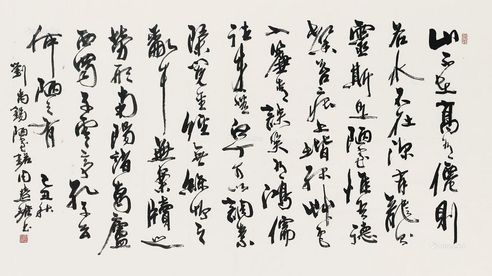 山不在高有僊則
名水不在深有龍則
靈斯是陋室惟吾德
馨苔痕上階綠艸色
入簾青談笑有鴻儒
往來無白丁可以調素
琴閱金經無絲竹之
亂耳無案牘之
勞形南陽諸葛廬
西蜀子雲亭孔子云
何陋之有
己丑秋
劉禹錫陋室銘